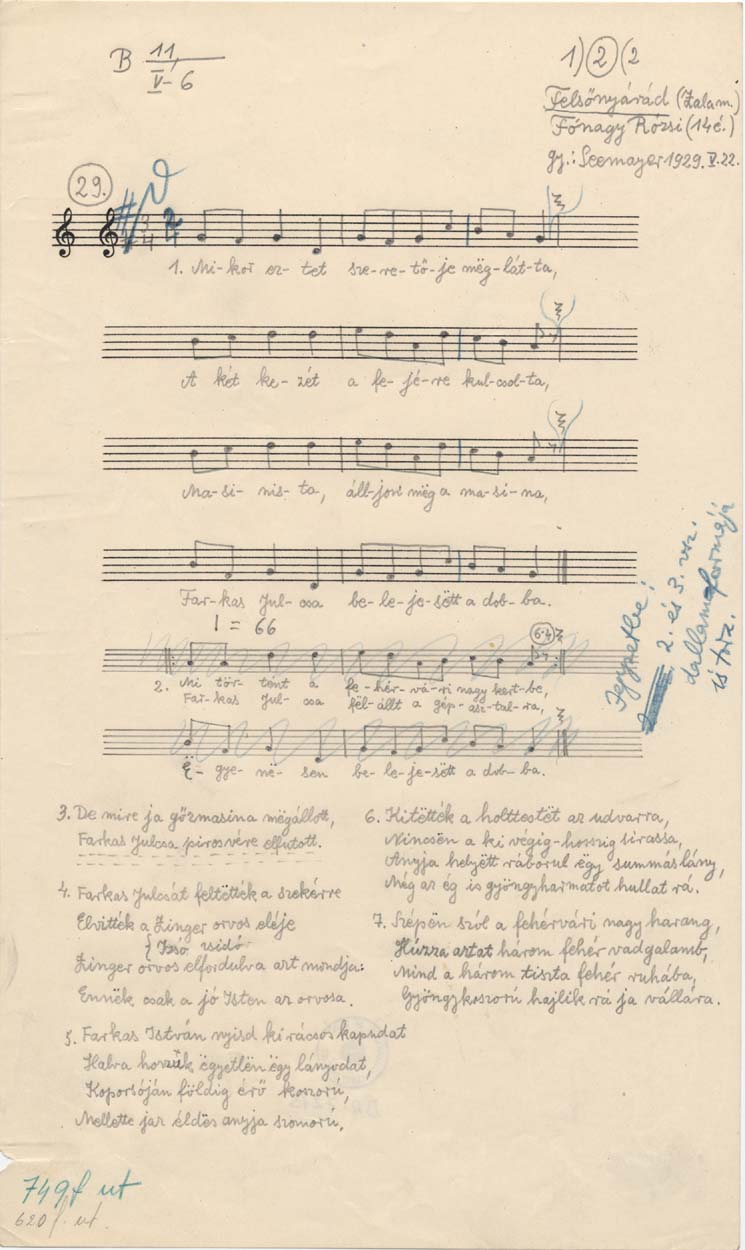 B 11, V-6
1) 2 (2
Felsőnyárád (Zalam.)
Fónagy Rózsi (14é.)
gy.: Seemayer 1929. V. 22.
29.
3/4 2/4
1. Mi-kor ez-tet sze-re-tő-je mëg-lát-ta,
A két ke-zét a fe-jé-re kul-csol-ta,
Ma-si-nis-ta, áll-jon mëg a ma-si-na,
Far-kas Jul-csa be-le-je-sëtt a dob-ba.
= 66
6.4
2. Mi tör-tént a fe-hér-vá-ri nagy kert-be,
Far-kas Jul-csa fël-állt a gép-asz-tal-ra,
Ë-gye-në-sen be-le-je-sëtt a dob-ba.
Jegyzetbe!
2. és 3. vsz.
dallamformája
is torz.
3. De mire ja gőzmasina mëgállott,
Farkas Julcsa pirosvére elfutott.
4. Farkas Julcsát feltëtték a szekérre
Elvitték a Zinger orvos eléje
Zinger orvos elfordulva azt mondja:
Ennëk csak a jó Isten az orvosa.
5. Farkas István nyisd ki rácsos kapudat
Halva hozzuk ëgyetlën ëgy lányodat,
Koporsóján földig érő koszorú,
Mellette jár éldës anyja szomorú.
6. Kitëtték a holttestët az udvarra,
Nincsën a ki végig-hosszig sirassa,
Anyja helyëtt ráborul ëgy summás lány,
Még az ég is gyöngyharmatot hullat rá.
7. Szépën szól a fehérvári nagy harang,
Húzza aztat három fehér vadgalamb,
Mind a három tiszta fehér ruhába,
Gyöngykoszorú hajlik rá ja vállára.
749f ut
620 f. ut.